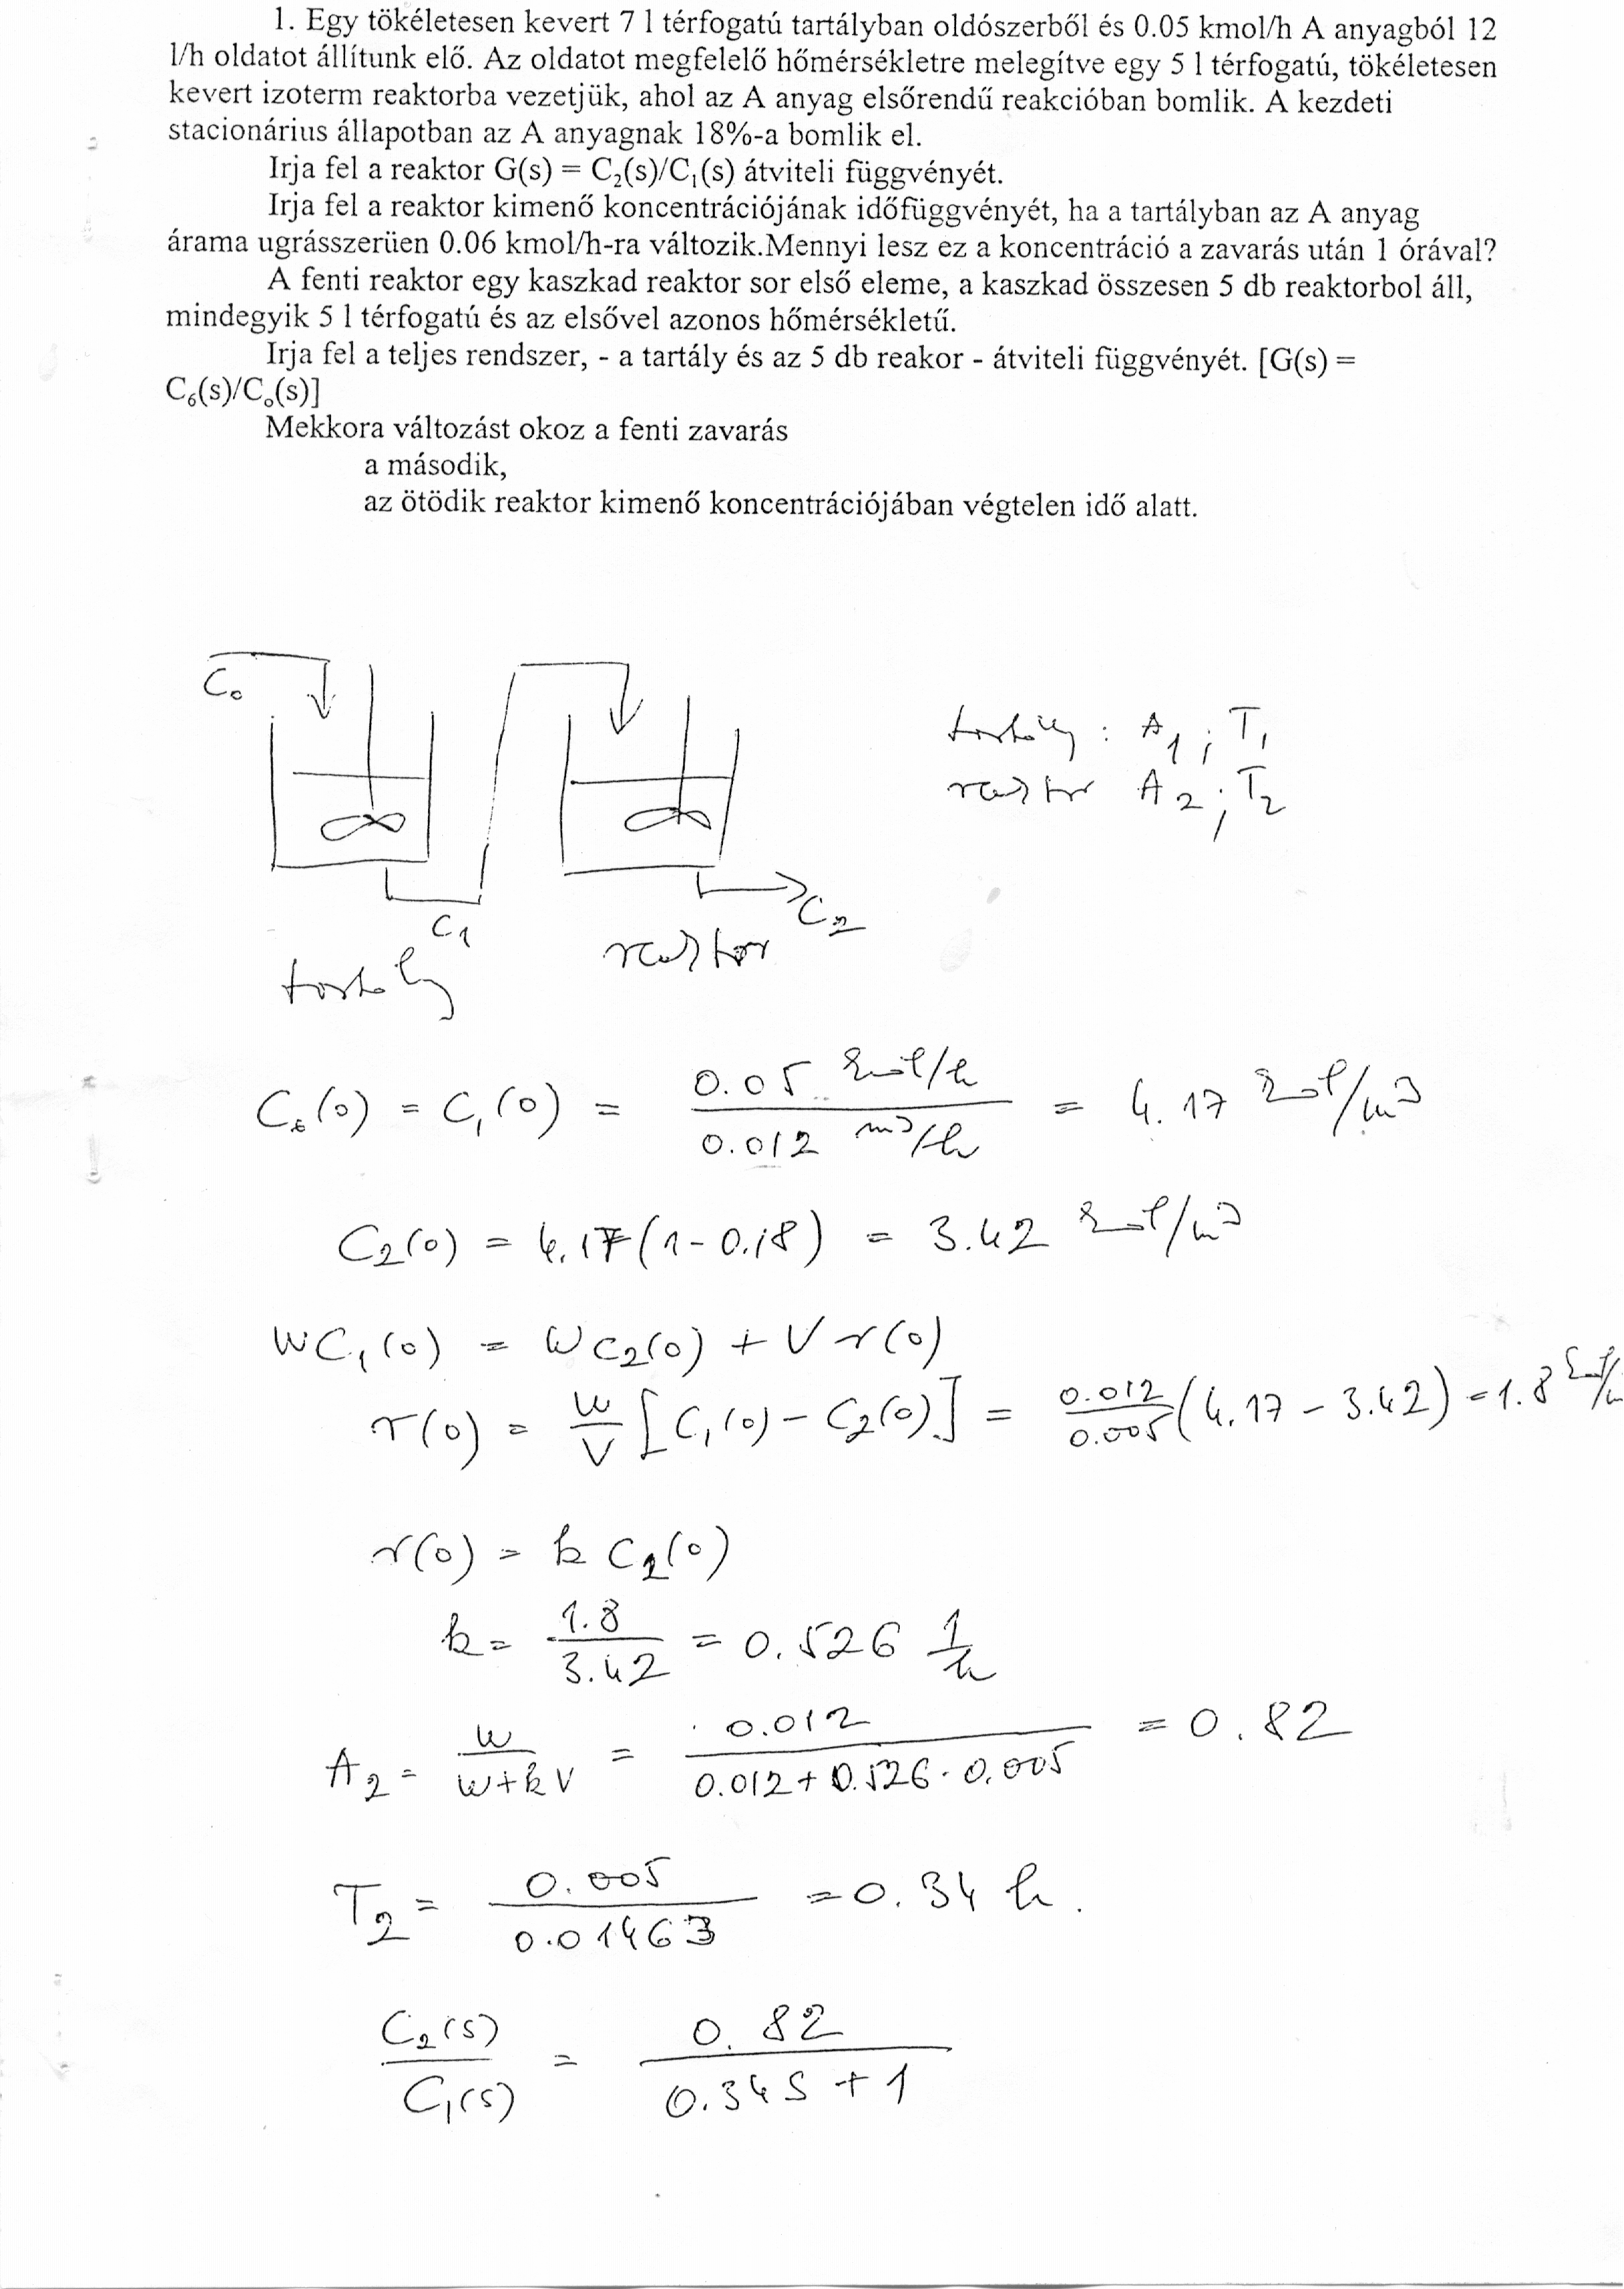 1. Egy tökéletesen kevert 7 l térfogatú tartályban oldószerből és 0.05 kmol/h A anyagból 12
l/h oldatot állítunk elő. Az oldatot megfelelő hőmérsékletre melegítve egy 5 l térfogatú, tökéletesen
kevert izoterm reaktorba vezetjük, ahol az A anyag elsőrendű reakcióban bomlik. A kezdeti
stacionárius állapotban az A anyagnak 18%-a bomlik el.
Irja fel a reaktor G(s) = C₂(s)/C₁(s) átviteli függvényét.
Irja fel a reaktor kimenő koncentrációjának időfüggvényét, ha a tartályban az A anyag
árama ugrásszerüen 0.06 kmol/h-ra változik.Mennyi lesz ez a koncentráció a zavarás után 1 órával?
A fenti reaktor egy kaszkad reaktor sor első eleme, a kaszkad összesen 5 db reaktorbol áll,
mindegyik 5 l térfogatú és az elsővel azonos hőmérsékletű.
Irja fel a teljes rendszer, - a tartály és az 5 db reakor - átviteli függvényét. [G(s) =
C₆(s)/Cₒ(s)]
Mekkora változást okoz a fenti zavarás
a második,
az ötödik reaktor kimenő koncentrációjában végtelen idő alatt.
C₀
tartály : A₁ ; T₁
reaktor A₂ ; T₂
C₁
C₂
tartály
reaktor
C₀(0) = C₁(0) = 0.05 kmol/h / 0.012 m³/h = 4.17 kmol/m³
C₂(0) = 4.17(1-0.18) = 3.42 kmol/m³
WC₁(0) = WC₂(0) + V r(0)
r(0) = W/V [C₁(0) - C₂(0)] = 0.012/0.005 (4.17 - 3.42) = 1.8
r(0) = k C₂(0)
k = 1.8/3.42 = 0.526 1/h
A₂ = W/(W+kV) = 0.012/(0.012+0.526·0.005) = 0.82
T₂ = 0.005/0.01463 = 0.34 h.
C₂(s)/C₁(s) = 0.82/(0.34s+1)